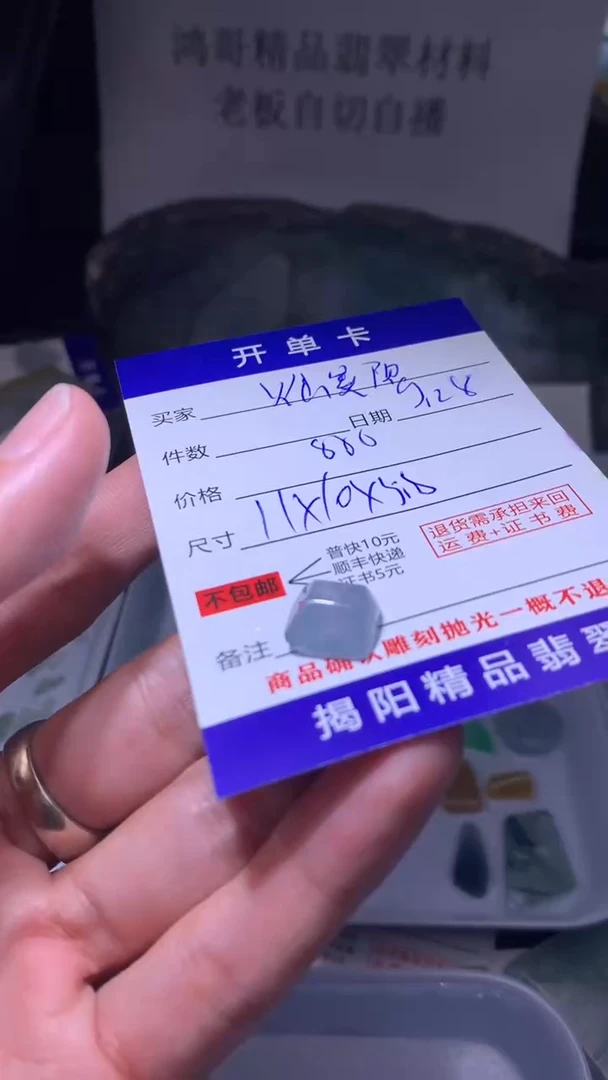 鸿哥精品翡翠材料
老板自切自播
开单卡
买家
日期 5.28
件数 886
价格
尺寸 11X10X5.8
退货需承担来回
运费+证书费
普快10元
不包邮 顺丰快递
证书5元
备注
商品确认雕刻抛光一概不退
揭阳精品翡翠